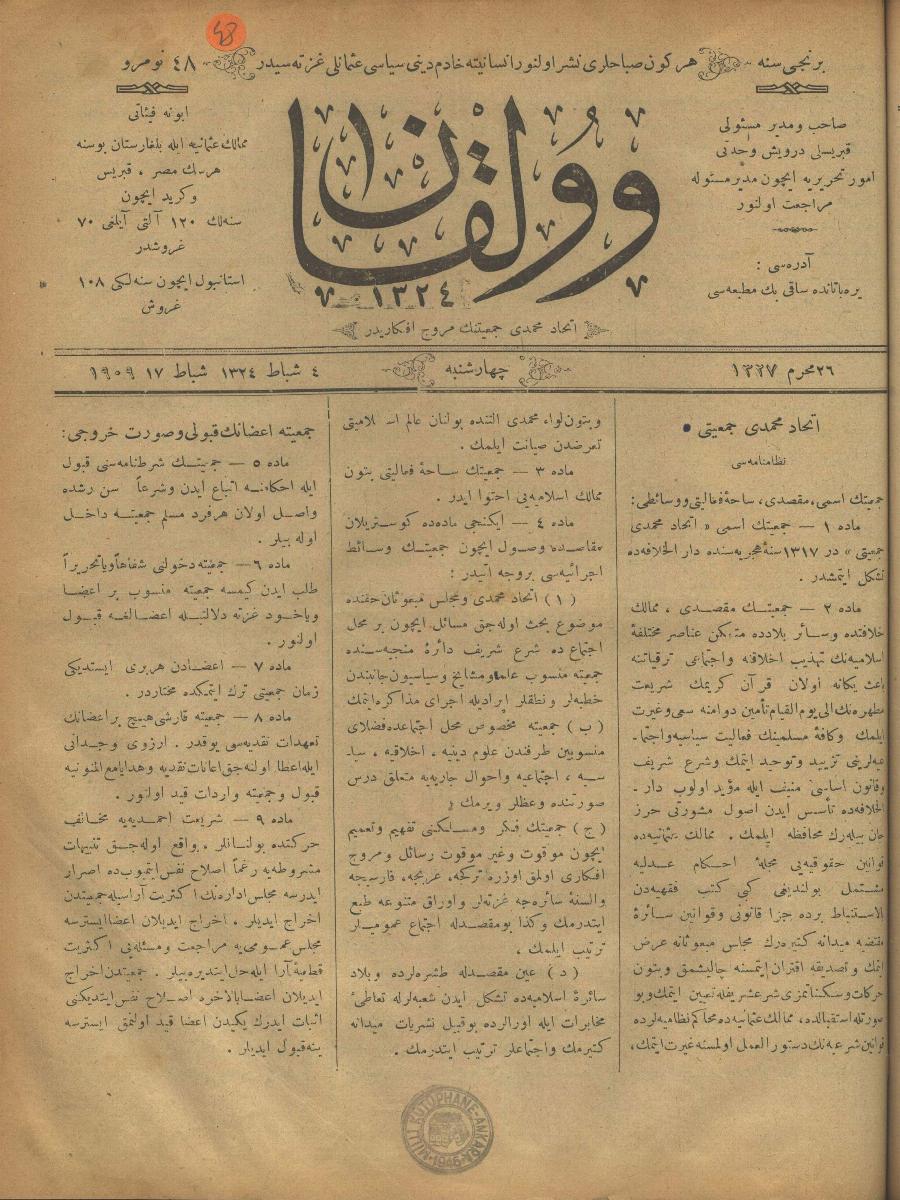 48
برنجی سنه
هر كون صباحلری نشر اولنور انسانیته خادم دینی سیاسی عثمانلی غزته سیدر
٤٨ نومرو
صاحب و مدیر مسئولی
قبریسلی درویش وحدتی
امور تحریریه ایچون مدیر مسئوله
مراجعت اولنور
آدره سی :
یره باتانده ساقی بك مطبعه سی
وولقان
١٣٢٤
اتحاد محمدی جمعیتنك مروج افكاریدر
ابونه فیئاتی
ممالك عثمانیه ایله بلغارستان بوسنه
هرسك مصر ، قبریس
وكرید ایچون
سنه لك ١٢٠ آلتی آیلغی ٧٠
غروشدر
استانبول ایچون سنه لكی ١٠٨
غروش
٢٦ محرم ١٣٢٧
چهارشنبه
٤ شباط ١٣٢٤ شباط ١٧ ١٩٠٩
اتحاد محمدی جمعیتی •
نظامنامه سی
جمعیتك اسمی، مقصدی، ساحۀ فعالیتی ووسائطی:
ماده ١ — جمعیتك اسمی « اتحاد محمدی
جمعیتی » در ١٣١٧ سنۀ هجریه سنده دار الخلافه ده
تشكل ایتمشدر .
ماده ٢ — جمعیتـك مقصـدی ، ممالك
خلافتده وسـائر بلادده متمكن عناصر مختلفۀ
اسلامیه نك تهذیب اخلاقنه واجتماعی ترقیاتنه
باعث یكانه اولان قرآن كریمك شریعت
مطهره نك الی یوم القیام تأمین دوامنه سعی وغیرت
ایلمك وكافۀ مسلمینك فعالیت سیاسیه واجتما ـ
عیه لرینی تزیید وتوحید ایتمك وشرع شریف
وقانون اساسئ منیف ایله مؤید اولوب دار ـ
الخلافه ده تأسس ایدن اصول مشورتی حرز
جان بیله رك محافظه ایلمك . ممالك عثمانیه ده
قوانین حقوقیه یی مجلۀ احكام عدلیه
مشتمل بولندیغی كبی كتب فقهیه دن
بالاستنباط برده جزا قانونی وقوانین سائرۀ
مقتضیه میدانه كتیره رك مجلس مبعوثانه عرض
ایتمك وتصدیقه اقتران ایتمسنه چالیشمق وبتون
حركات وسكناتمزی شرع شریفله تعیین ایتمك وبو
صورتله استقبالده، ممالك عثمانیه ده محاكم نظامیه لرده
قوانین شرعیه نك دستور العمل اولمسنه غیرت ایتمك،
وبتون لواء محمدی آلتنده بولنان عالم اسـلامیتی
تعرضدن صیانت ایلمك .
ماده ٣ — جمعیتك ساحۀ فعالیتی بتون
ممالك اسلامیه یی احتوا ایدر .
ماده ٤ — ایكنجی ماده ده كوستریلان
مقاصـده وصـول ایچون جمعیتـك وسـائط
اجرائیه سی بروجه آتیدر :
( ا ) اتحاد محمدی ومجلس مبعوثان حقنده
موضوع بحث اوله جق مسائل ایچون بر محل
اجتماع ده شرع شریف دائرۀ منجیه سـنده
جمعیته منسوب علما ومشایخ وسیاسیون جانبندن
خطبه لر ونطقلر ایرادیله اجرای مذاكره ایتمك
( ب ) جمعیته مخصوص محل اجتماعده فضلای
منسوبین طرفندن علوم دینیه ، اخلاقیه ، سیا ـ
سیه ، اجتماعیه واحوال جاریه یه متعلق درس
صورتنده وعظلر ویرمك
( ج ) جمعیتك فكر ومسـلكنی تفهیم وتعمیم
ایچون موقوت وغیر موقوت رسائل ومروج
افكاری اولمق اوزره تركجه، عربجه، فارسیجه
والسنۀ سائره جه غزته لر واوراق متنوعه طبع
ایتدرمك وكذا بو مقصدله اجتماع عمومیلر
ترتیب ایلمك ،
( د ) عین مقصـدله طشره لرده وبلاد
سـائرۀ اسـلامیه ده تشكل ایدن شعبه لرله تعاطئ
مخابرات ایله اورالرده بو قبیل نشریات میدانه
كتیرمك واجتماعلر ترتیب ایتدرمك .
جمعیته اعضانك قبولی وصورت خروجی:
ماده ٥ — جمعیتـك شرطنامه سنی قبول
ایله احكامنـه اتباع ایدن وشرعاً سن رشده
واصـل اولان هر فرد مسلم جمعیتـه داخـل
اوله بیلر .
ماده ٦ — جمعیته دخولنی شفاهاً ویا تحریراً
طلب ایدن كیمسه جمعیته منسوب بر اعضـا
ویاخـود غزته دلالتیـله اعضـالغـه قبـول
اولنور .
ماده ٧ — اعضـادن هر بری ایستدیكی
زمان جمعیتی ترك ایتمكده مختاردر .
ماده ٨ — جمعیته قارشی هیچ بر اعضانك
تعهدات نقدیه سی یوقدر . آرزوی وجـدانی
ایله اعطا اولنه جق اعانات نقدیه وهدایا مع الممنونیه
قبول وجمعیته واردات قید اولنور .
ماده ٩ — شریعت احمدیه یه مخـالف
حركتده بولنـانلر . واقع اوله جـق تنبیهات
مشروطه یه رغماً اصلاح نفس ایتمیوب ده اصرار
ایدرسه مجلس اداره نك اكثریت آراسیله جمعیتدن
اخراج ایدیلر . اخراج ایدیلان اعضا ایسترسه
مجلس عمـومی یه مراجعت ومسئله یی اكثریت
قطعیۀ آرا ایله حل ایتدیره بیلر . جمعیتدن اخراج
ایدیلان اعضـا بالاخره اصـلاح نفس ایتدیكنی
اثبات ایدرك یكیدن اعضا قید اولنمق ایسترسه
ینه قبول ایدیلر .
MİLLİ KÜTÜPHANE - ANKARA
1946